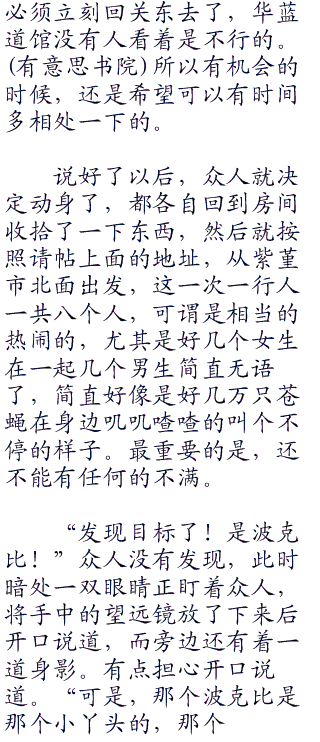 必须立刻回关东去了，华蓝
道馆没有人看着是不行的。
(有意思书院)所以有机会的
时候，还是希望可以有时间
多相处一下的。
说好了以后，众人就决
定动身了，都各自回到房间
收拾了一下东西，然后就按
照请帖上面的地址，从紫堇
市北面出发，这一次一行人
一共八个人，可谓是相当的
热闹的，尤其是好几个女生
在一起几个男生简直无语
了，简直好像是好几万只苍
蝇在身边叽叽喳喳的叫个不
停的样子。最重要的是，还
不能有任何的不满。
“发现目标了！是波克
比！”众人没有发现，此时
暗处一双眼睛正盯着众人，
将手中的望远镜放了下来后
开口说道，而旁边还有着一
道身影。有点担心开口说
道。“可是，那个波克比是
那个小丫头的，那个